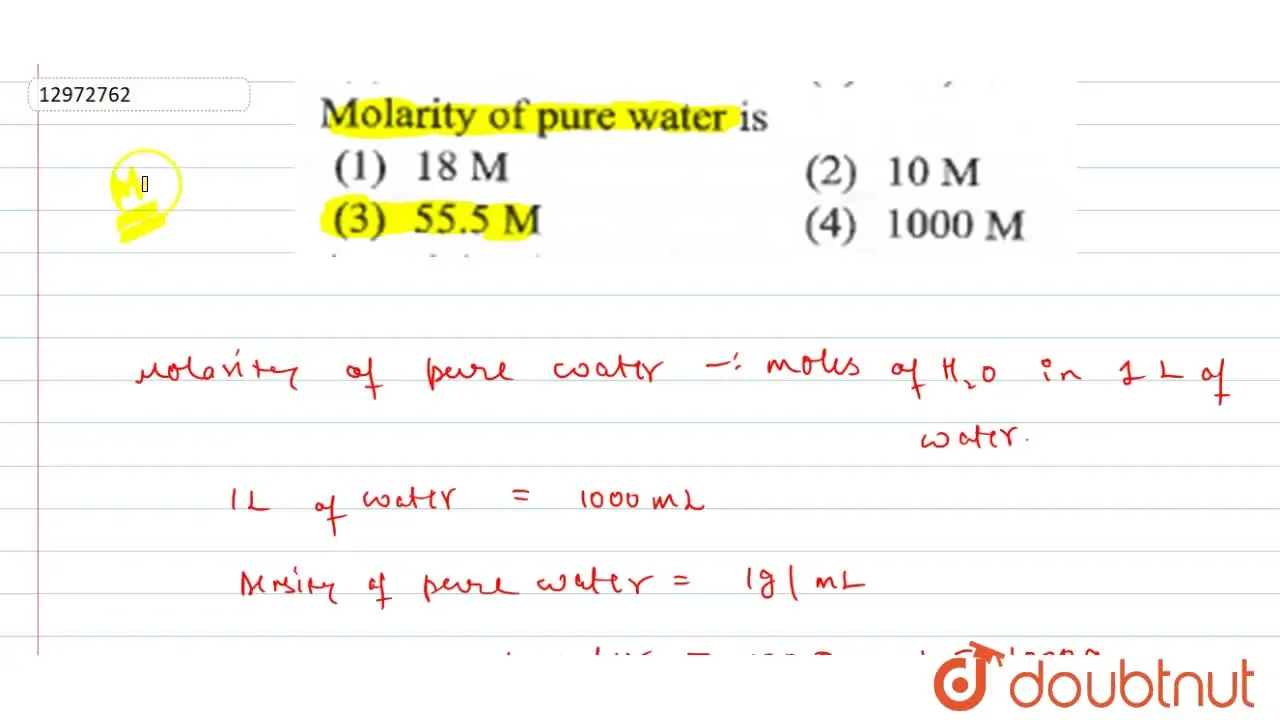 12972762
Molarity of pure water is
(1) 18 M (2) 10 M
(3) 55.5 M (4) 1000 M
M
Molarity of pure water → moles of H₂O in 1 L of
water.
1L of water = 1000 mL
Density of pure water = 1g/mL
doubtnut